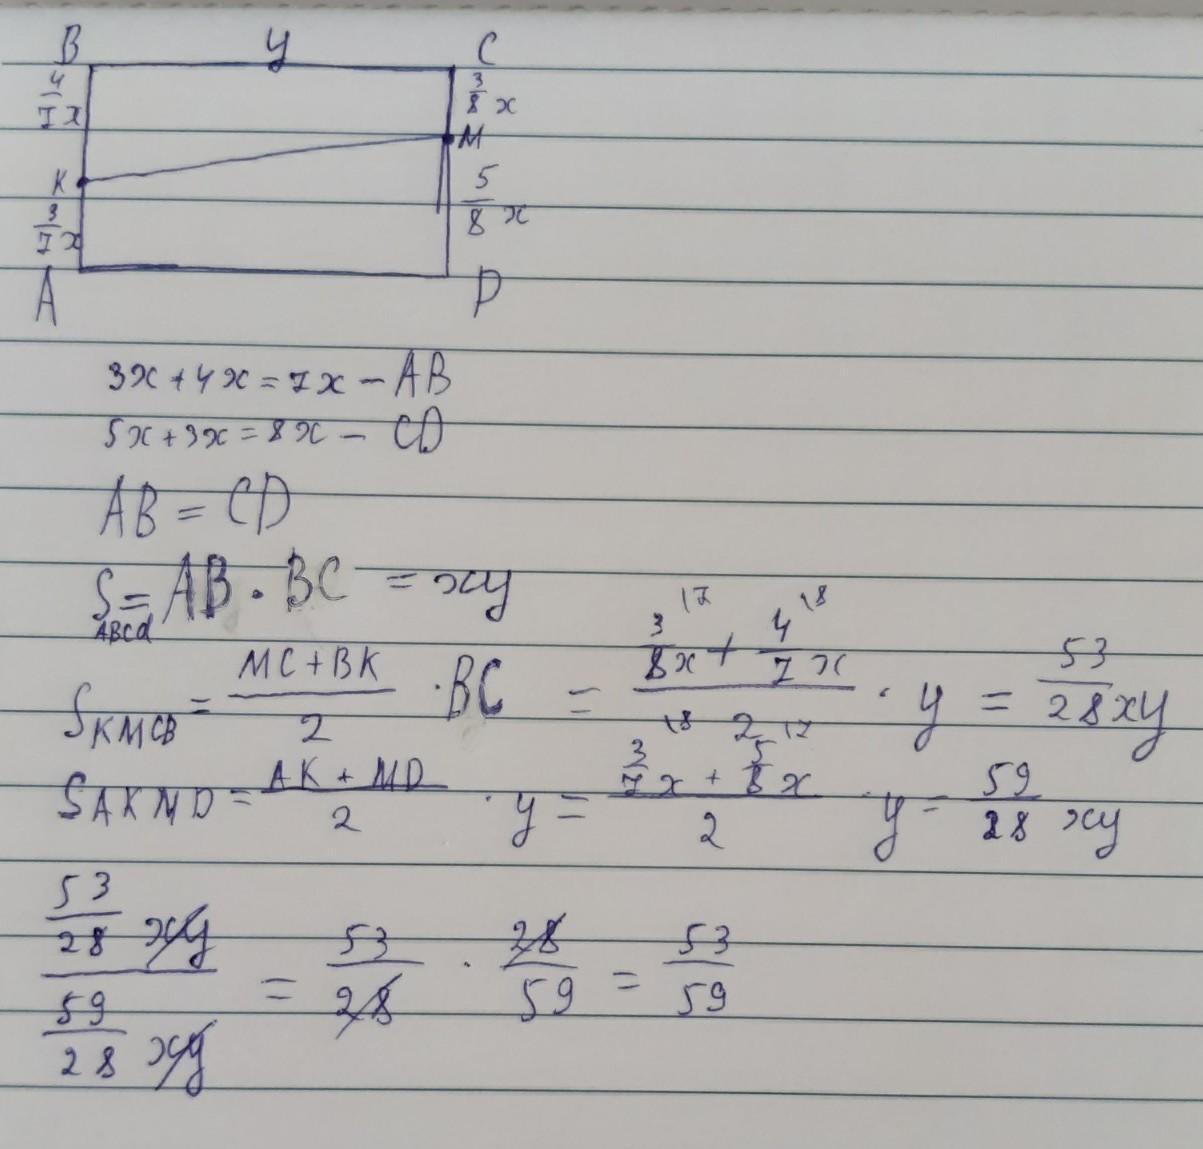 B y C
4/7 x 3/8 x
K M
3/7 x 5/8 x
A D
3x + 4x = 7x – AB
5x + 3x = 8x – CD
AB = CD
S ABCd = AB · BC = xy
S KMCB = (MC + BK)/2 · BC = (3/8 x \7 + 4/7 x \8)/2 · y = 53/28 xy
S AKMD = (AK + MD)/2 · y = (3/7 x \8 + 5/8 x \7)/2 · y = 59/28 xy
(53/28 xy)/(59/28 xy) = 53/28 · 28/59 = 53/59